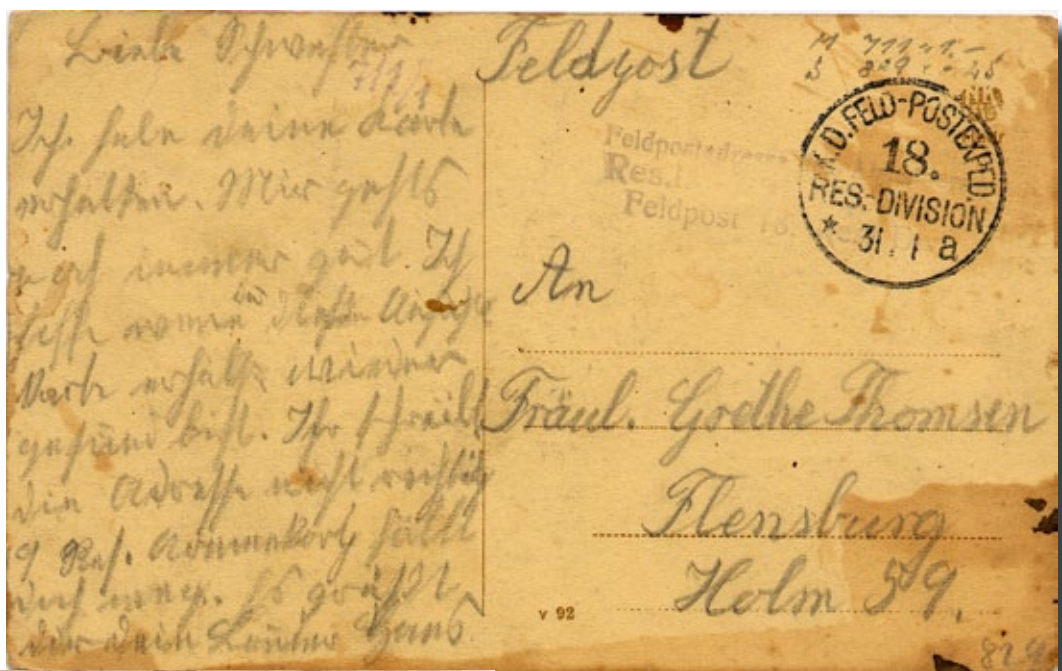 Liebe Schwester
Ich habe deine Karte
erhalten. Mir gehts
noch immer gut. Ich
hoffe wenn du diese
Karte erhälst wieder
gesund bist. Ihr schreibt
die Adresse nicht richtig
9 Res. Armeekorps fällt
doch weg. Es grüßt
dir dein Bruder Hans
Feldpost
Feldpostadresse
Res.I.
Feldpost 18.
K.D. FELD-POSTEXPED.
18.
RES.-DIVISION
* 31. 1 a
An
Fräul. Grethe Thomsen
Flensburg
Holm 59.
v 92